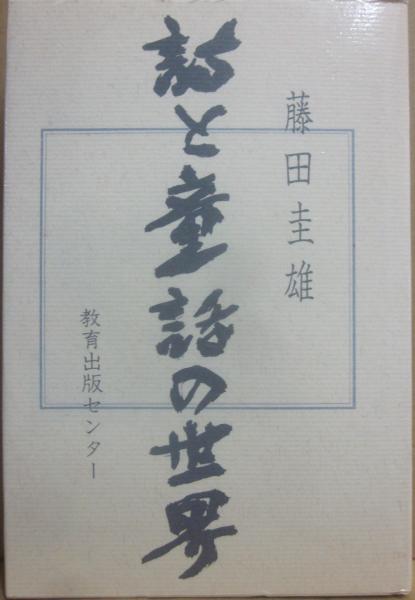 藤田圭雄
詩と童話の世界
教育出版センター